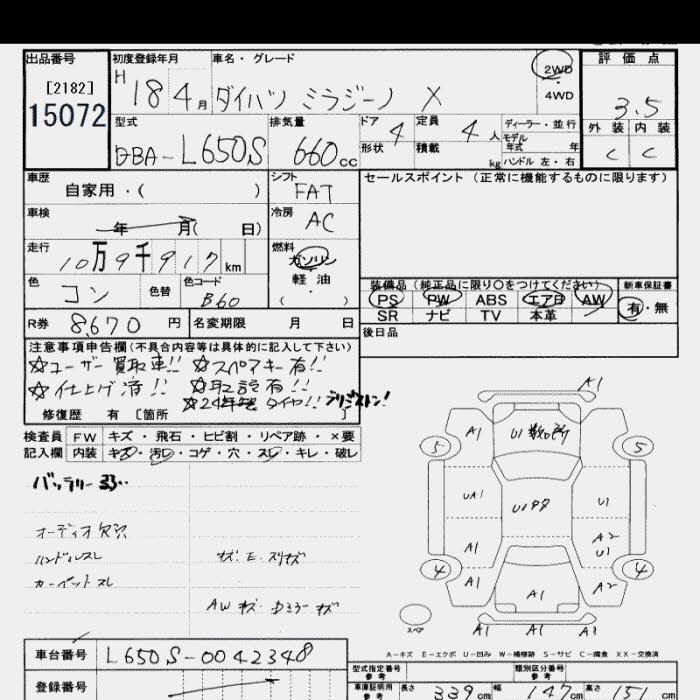 出品番号 初度登録年月 車名・グレード 2WD ・ 4WD 評価点
[2182]
15072
H 18 4月 ダイハツ ミラジーノ X
3.5
型式 排気量 ドア 4 定員 4人 ディーラー・並行 外装 内装
DBA-L650S 660cc 形状 積載 kg モデル年式 年
ハンドル 左・右 C C
車歴 シフト セールスポイント（正常に機能するものに限ります）
自家用・( ) FAT
車検 冷房
年 月( 日) AC
走行 燃料
10万9千917km ガソリン
軽油
( )
色 色替 色コード 装備品（純正品に限り〇をつけてください） 新車保証書
コン B60 PS PW ABS エアB AW 有・無
SR ナビ TV 本革
R券 8,670円 名変期限 月 日 後日品
注意事項申告欄(不具合内容等は具体的に記入して下さい)
☆ユーザー買取車!! ☆スペアキー有!!
☆仕上げ済!! ☆取説有!!
☆24年製タイヤ!! ブリジストン!
修復歴 有 [箇所 ]
検査員 FW キズ・飛石・ヒビ割・リペア跡・×要
記入欄 内装 キズ・汚レ・コゲ・穴・スレ・キレ・破レ
バッテリー弱..
オーディオ欠沢
ハンドルスレ キズ・E・スリキズ
カーペットスレ
AWキズ・Dミラーキズ
A1
A1 U1数ヶ所
5 5
UA1 U1
A1 A2
U1
4 4
A1 A1 A2
スペア A1 A1
A-キズ E-エクボ U-凹み W-補修跡 S-サビ C-腐食 XX-交換済
車台番号 L650S-0042348
型式指定番号 参考 類別区分番号 参考
登録番号 車庫証明用 参考 長さ 339cm 幅 147cm 高さ 151cm